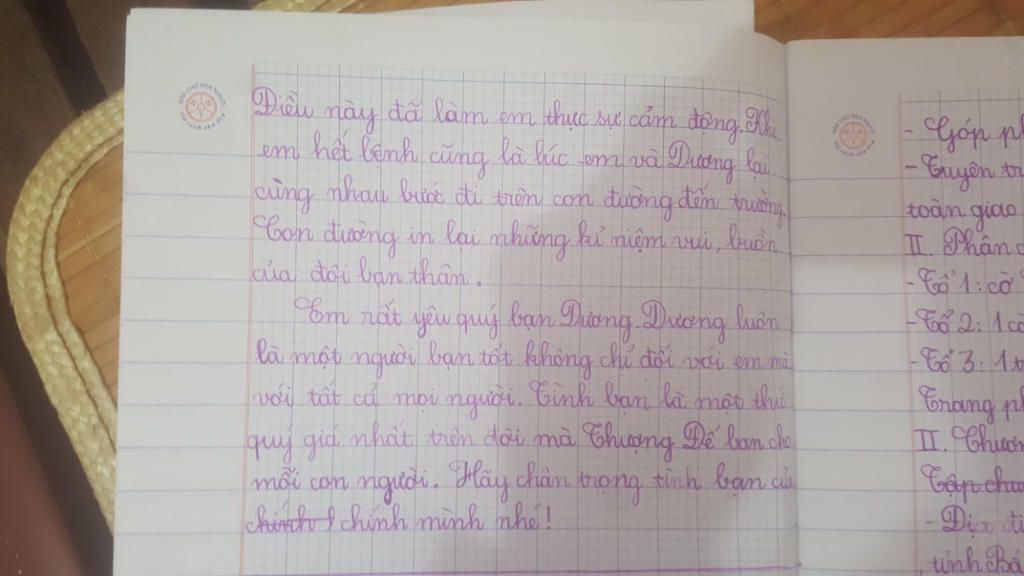 Điều này đã làm em thực sự cảm động. Khi
em hết bệnh cũng là lúc em và Dương lại
cùng nhau bước đi trên con đường đến trường.
Con đường in lại những kỉ niệm vui, buồn
của đôi bạn thân.
Em rất yêu quý bạn Dương. Dương luôn
là một người bạn tốt không chỉ đối với em mà
với tất cả mọi người. Tình bạn là một thứ
quý giá nhất trên đời mà Thượng Đế ban cho
mỗi con người. Hãy chân trọng tình bạn của
chính mình nhé!
- Góp ph
- Tuyên tr
toàn giao
II. Phân c
- Tổ 1: cờ
- Tổ 2: 1 cà
- Tổ 3: 1 t
Trang ph
II. Chươn
- Địa đi
tỉnh Bá